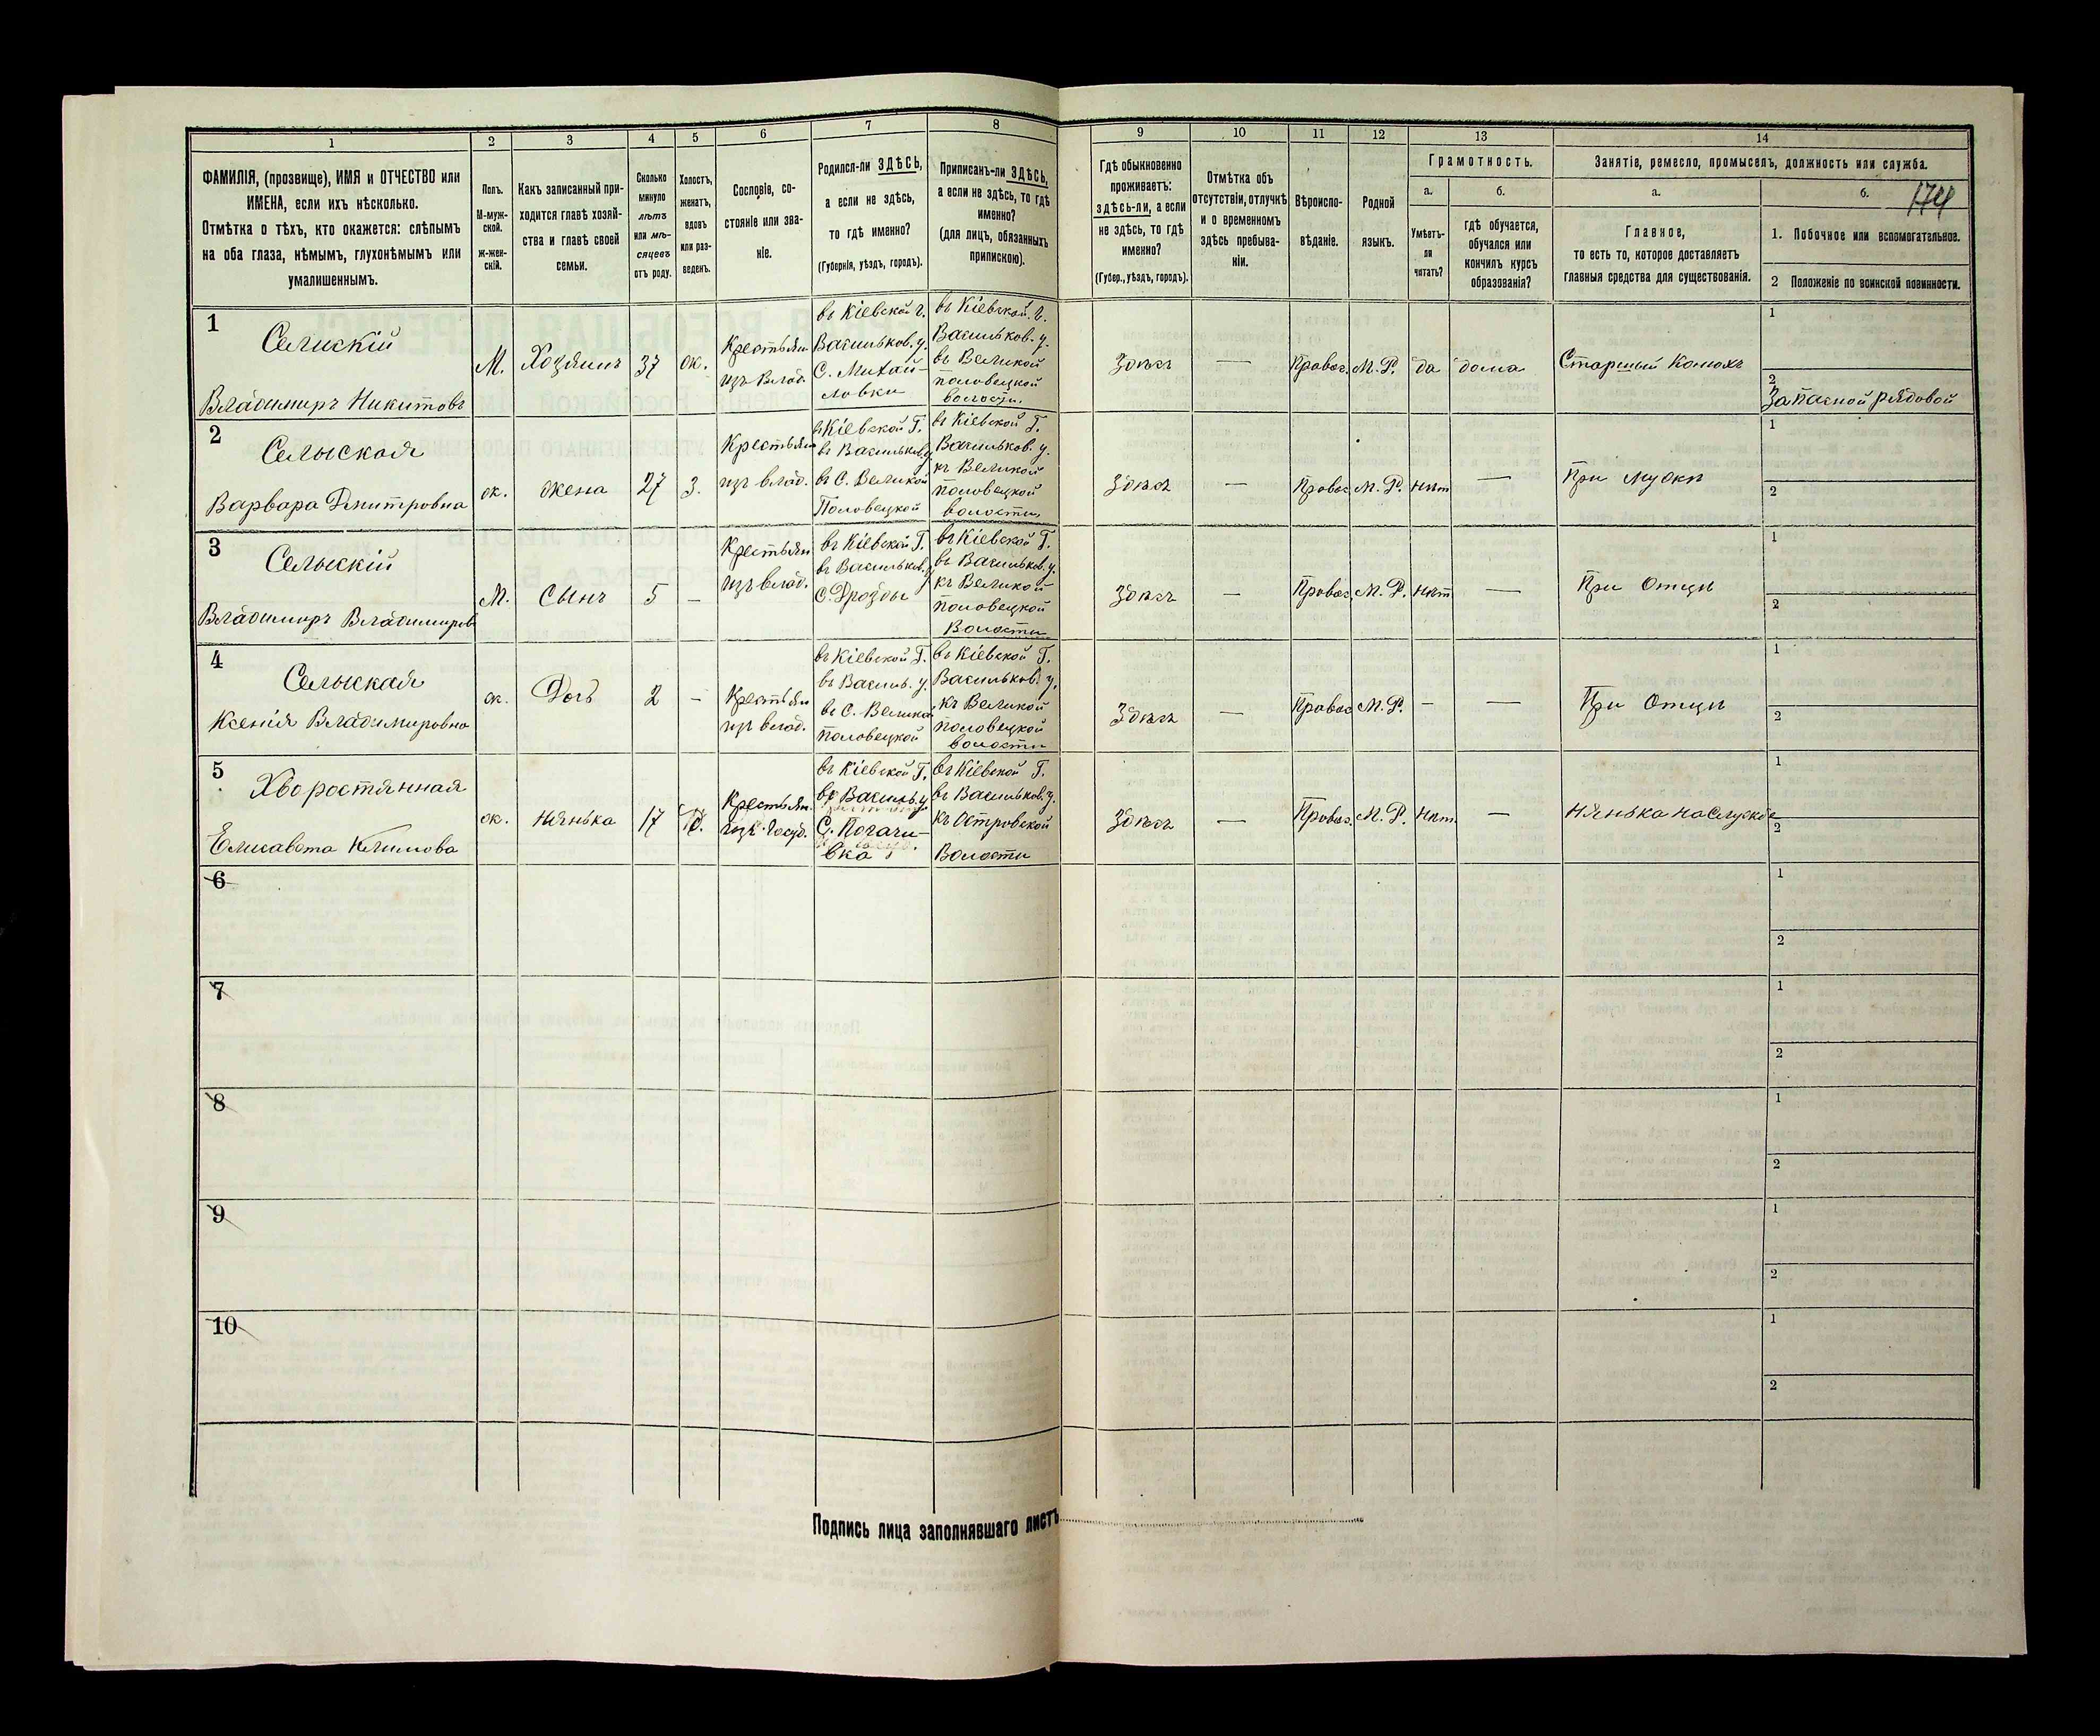 1 2 3 4 5 6 7 8 9 10 11 12 13 14
ФАМИЛІЯ, (прозвище), ИМЯ и ОТЧЕСТВО или
ИМЕНА, если ихъ нѣсколько.
Отмѣтка о тѣхъ, кто окажется: слѣпымъ
на оба глаза, нѣмымъ, глухонѣмымъ или
умалишеннымъ.
Полъ.
М-муж-
ской.
ж-жен-
скій.
Какъ записанный при-
ходится главѣ хозяй-
ства и главѣ своей
семьи.
Сколько
минуло
лѣтъ
или мѣ-
сяцевъ
отъ роду.
Холостъ,
женатъ,
вдовъ
или раз-
веденъ.
Сословіе, со-
стояніе или зва-
ніе.
Родился-ли ЗДѢСЬ,
а если не здѣсь,
то гдѣ именно?
(Губернія, уѣздъ, городъ).
Приписанъ-ли ЗДѢСЬ,
а если не здѣсь, то гдѣ
именно?
(для лицъ, обязанныхъ
припискою).
Гдѣ обыкновенно
проживаетъ:
здѣсь-ли, а если
не здѣсь, то гдѣ
именно?
(Губер., уѣздъ, городъ).
Отмѣтка объ
отсутствіи, отлучкѣ
и о временномъ
здѣсь пребыва-
ніи.
Вѣроиспо-
вѣданіе.
Родной
языкъ.
Грамотность.
а.
Умѣетъ-
ли
читать?
б.
гдѣ обучается,
обучался или
кончилъ курсъ
образованія?
Занятіе, ремесло, промыселъ, должность или служба.
а.
Главное,
то есть то, которое доставляетъ
главныя средства для существованія.
б.
174
1. Побочное или вспомогательное.
2 Положеніе по воинской повинности.
1
Селискій
Владимиръ Никитовъ
М.
Хозяинъ
37
ж.
Крестьян
изъ влад.
въ Кіевской г.
Васильков. у.
С. Михай-
ловки
въ Кіевской г.
Васильков. у.
въ Великой
половецкой
волости.
Здѣсь
—
Правос.
М. Р.
да
дома
Старший Конюхъ
1
2
Запасной рядовой
2
Селыская
Варвара Дмитровна
ж.
жена
27
З.
Крестьян
изъ влад.
въ Кіевской Г.
въ Васильков. у.
въ С. Великой
Половецкой
въ Кіевской Г.
Васильков. у.
къ Великой
половецкой
волости
Здѣсь
—
Правос
М. Р.
нѣт
—
При мужѣ
1
2
3
Селыскій
Владимиръ Владимиров
М.
Сынъ
5
–
Крестьян
изъ влад.
въ Кіевской Г.
въ Васильков. у.
С. Дрозды
въ Кіевской Г.
въ Васильков. у.
къ Великой
половецкой
Волости
Здѣсь
—
Правос
М. Р.
нѣт
—
При Отцѣ
1
2
4
Селыская
Ксенія Владимировна
ж.
Дочь
2
–
Крестьян
изъ влад.
въ Кіевской Г.
въ Василь. у.
въ С. Велика
половецкой
въ Кіевской Г.
Васильков. у.
къ Великой
половецкой
волости
Здѣсь
—
Правос
М. Р.
–
—
При Отцѣ
1
2
5
Хворостянная
Елисавета Климова
ж.
Нянька
17
Крестьян.
изъ Госуд.
въ Кіевской Г.
въ Василь. у
С. Погачи-
вка
въ Кіевской Г.
въ Васильков. у.
къ Островской
Волости
Здѣсь
—
Правос.
М. Р.
Нѣт.
—
Нянька на Службе
1
2
6
1
2
7
1
2
8
1
2
9
1
2
10
1
2
Подпись лица заполнявшаго листъ